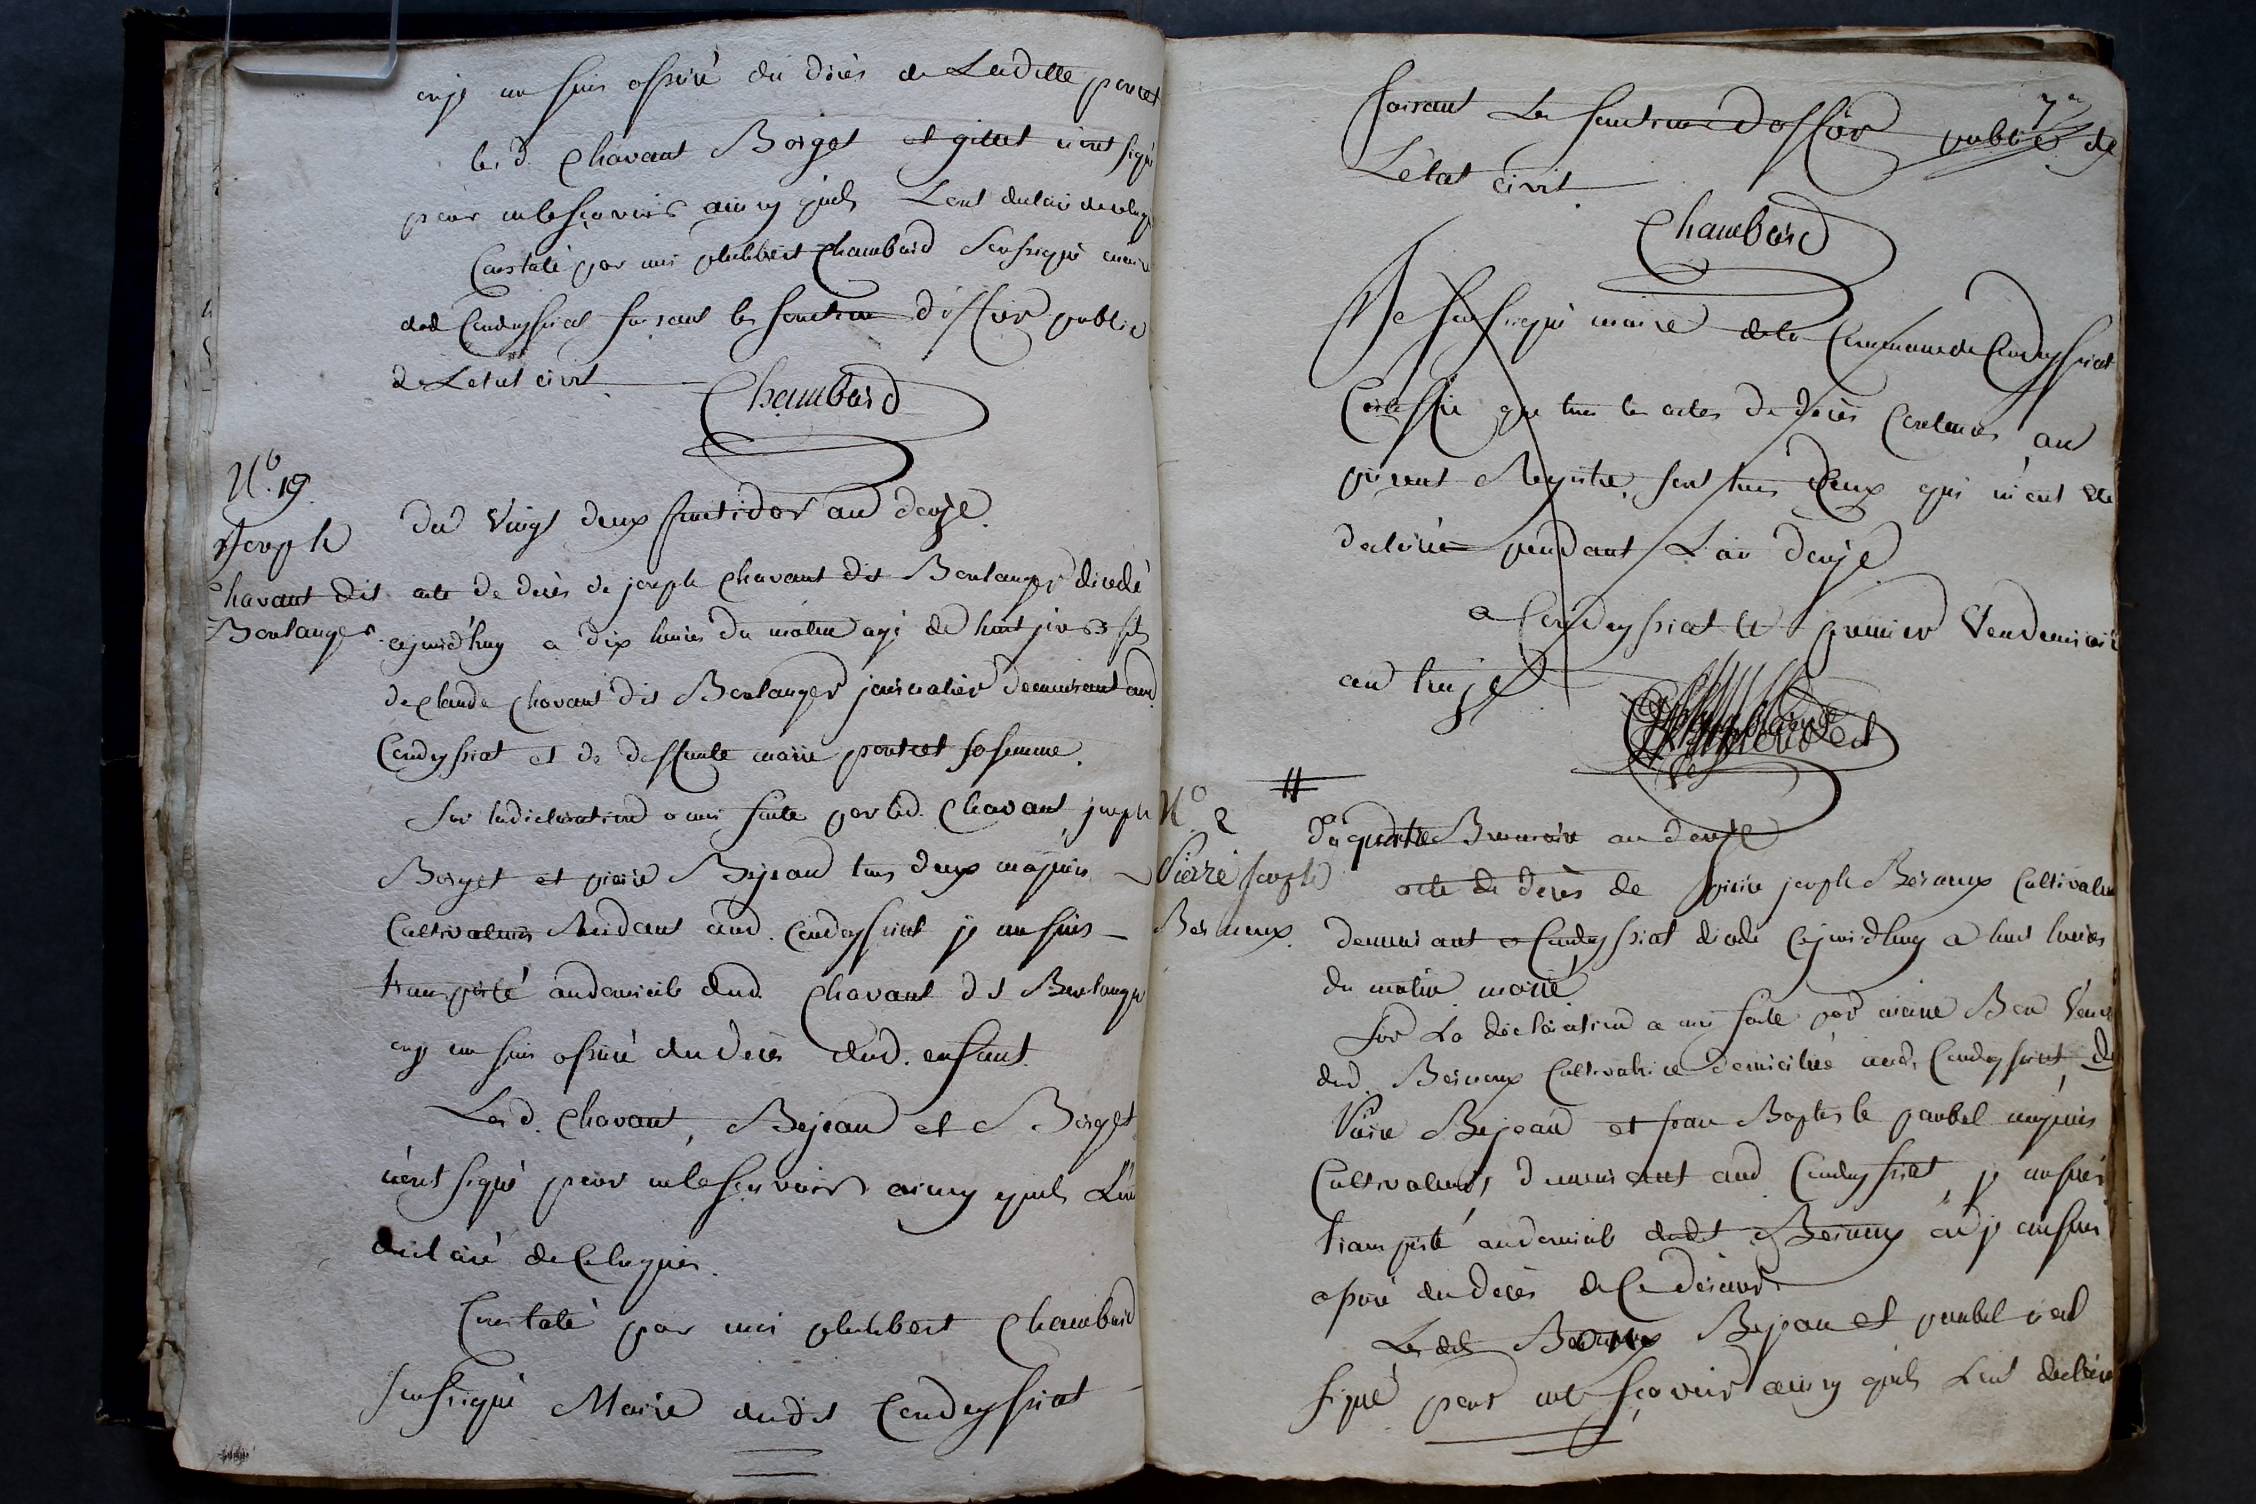 ou je me suis assuré du décès de Ladille poncet
les d. Chavant Borget et gillet n'ont signé
pour ne le sçavoir ainsy quils L'ont declaré de ce Requis
Constaté par moi philibert Chambard soussigné maire
dud Condeyssiat faisant les fonctions d'officier public
de L'etat civil
Chambard
N.o 19.
Joseph
Chavant dit
Boulanger
du Vingt deux fructidor an douze
acte de décès de joseph Chavant dit Boulanger décédé
cejourd'huy a dix heures du matin agé de huit jours fils
de Claude Chavant dit Boulanger journalier demeurant aud.
Condeyssiat et de deffunte marie poncet sa femme.
Sur la déclaration a moi faite par led. Chavant, joseph
Borget et pierre Bejean tous deux majeurs
Cultivateurs Residants aud. Condeyssiat je me suis
transporté au domicile dud. Chavant dit Boulanger
ou je me suis assuré du décès dud. enfant.
Les d. Chavant, Bejean et Borget
n'ont signé pour ne le sçavoir ainsy quils L'ont
declaré de ce Requis.
Constaté par moi philibert Chambard
soussigné Maire dudit Condeyssiat
7
faisant Les fonctions d'officier public de
L'état civil
Chambard
Je soussigné maire de la Commune de Condeyssiat
Certiffie que tous les actes de décès Contenus au
présent Registre sont tous Ceux qui m'ont été
declarés pendant L'an douze
a Condeyssiat le premier Vendemiaire
an treize
N.o 2
Pierre joseph
Beraux
du quatre Brumaire an douze
acte de décès de pierre joseph Beraux Cultivateur
demeurant a Condeyssiat décédé Cejourd'huy a huit heures
du matin marié
Sur La déclaration a moi faite par marie Veuve
dud. Beraux Cultivatrice domiciliée aud. Condeyssiat, de
Bejean et jean Baptiste paubel majeurs
Cultivateurs, demeurant aud Condeyssiat, je me suis
transporté au domicile dudit Beraux où je me suis
assuré du décès de Ce dernier
Les dits Beraux Bejean et paubel n'ont
signé pour ne sçavoir ainsy quils L'ont declaré